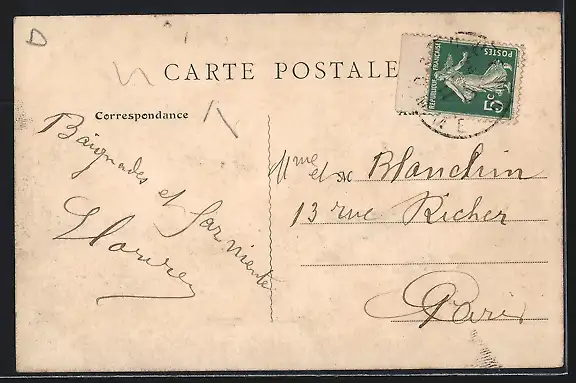 D
CARTE POSTALE
REPUBLIQUE FRANÇAISE
POSTES
5c
Correspondance
Baignades
et Farniente
Mme et Mr Blanchin
13 rue Richer
Paris